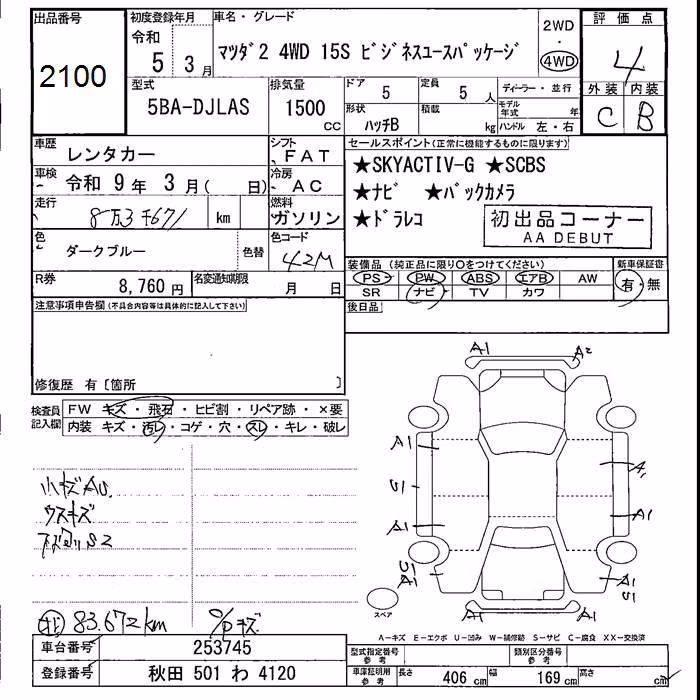 出品番号 初度登録年月 車名・グレード 2WD 評価点
2100 令和 5 3月 マツダ2 4WD 15S ビジネスユースパッケージ ・ 4WD 4
型式 排気量 ドア 5 定員 5人 ディーラー・並行 外装 内装
5BA-DJLAS 1500 CC 形状 ハッチB 積載 kg モデル年式 年 ハンドル 左・右 C B
車歴 レンタカー シフト FAT セールスポイント(正常に機能するものに限ります)
車検 令和 9年 3月( 日) 冷房 AC ★SKYACTIV-G ★SCBS
走行 8万3千671 km 燃料 ガソリン ★ナビ ★バックカメラ
★ドラレコ 初出品コーナー
色 ダークブルー 色替 色コード 42M AA DEBUT
装備品(純正品に限り○をつけてください) 新車保証書
R券 8,760円 名変通知期限 月 日 PS PW ABS エアB AW 有・無
SR ナビ TV カワ
注意事項申告欄(不具合内容等は具体的に記入して下さい) 後日品
修復歴 有〔箇所 〕
検査員記入欄 FW キズ・飛石・ヒビ割・リペア跡・×要
内装 キズ・汚レ・コゲ・穴・スレ・キレ・破レ
A1 A2
A1 A1
S1
A1 A1
S1 A1 A1 S1
A1 A1
小キズAU
ウスキズ
スペア
83.672km O/Pキズ
A-キズ E-エクボ U-凹み W-補修跡 S-サビ C-腐食 XX-交換済
車台番号 253745 型式指定番号 参考 類別区分番号 参考
登録番号 秋田 501 わ 4120 車庫証明用 参考 長さ 406cm 幅 169cm 高さ cm